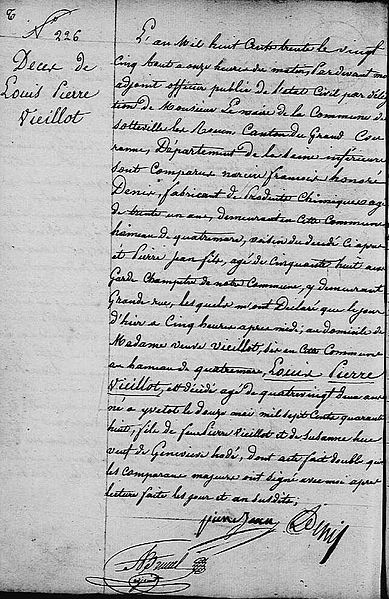 N° 226
Décès de
Louis Pierre
Vieillot
L'an Mil huit Cents trente le vingt
cinq Aout a onze heures du matin, Pardevant moi
adjoint officier public de l'etat Civil par déléga
tion de Monsieur Le maire de la Commune de
Sotteville les Rouen, Canton du Grand Cou
ronne, Département de la Seine inférieure
sont Comparus narcisse francois honoré
Denis, fabricant de Produits Chimiques, agé
de trente un ans, demeurant en Cette Commune
hameau de quatremare, voisin du décédé Ci après
et Pierre jean fils, agé de Cinquante huit ans
Garde Champêtre de notre Commune, y demeurant
Grande rue, lesquels m'ont Déclaré que le jour
d'hier a Cinq heures apres midi; au domicile de
Madame veuve Vieillot, sis en Cette Commune
au hameau de quatremare, Louis Pierre
Vieillot, est décédé agé de quatrevingt deux ans
né a yvetot le douze mai mil sept Cents quarante
huit, fils de feu Pierre Vieillot et de Susanne hue
veuf de Genevieve hodé, dont acte fait double que
les comparans majeurs ont signé avec moi apres
lecture faite les jour et an susdits,
pierre Jean Denis